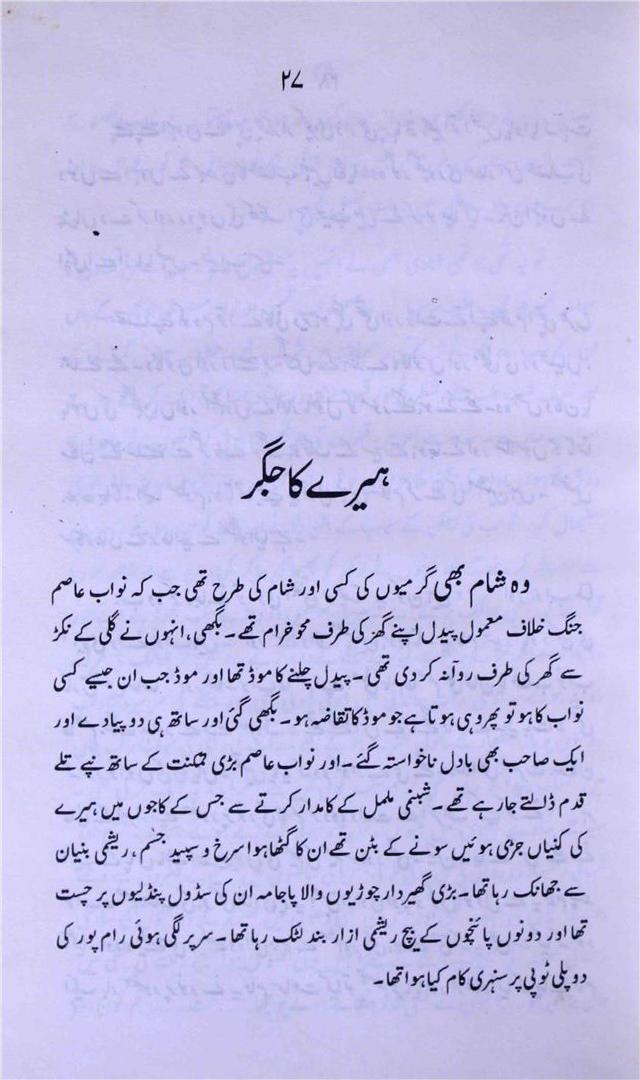 ۲۷
ہیرے کا جگر
وہ شام بھی گرمیوں کی کسی اور شام کی طرح تھی جب کہ نواب عاصم
جنگ خلاف معمول پیدل اپنے گھر کی طرف محو خرام تھے۔ بگھی، انہوں نے گلی کے نکڑ
سے گھر کی طرف روآنہ کر دی تھی۔ پیدل چلنے کا موڈ تھا اور موڈ جب ان جیسے کسی
نواب کا ہو تو پھر وہی ہوتا ہے جو موڈ کا تقاضہ ہو۔ بگھی گئی اور ساتھ ہی دو پیادے اور
ایک صاحب بھی بادل ناخواستہ گئے۔ اور نواب عاصم بڑی تمکنت کے ساتھ نپے تلے
قدم ڈالتے جا رہے تھے۔ شبنمی ململ کے کامدار کرتے سے جس کے کاجوں میں ہیرے
کی کنیاں جڑی ہوئیں سونے کے بٹن تھے ان کا گٹھا ہوا سرخ و سپید جسم، ریشمی بنیان
سے جھانک رہا تھا۔ بڑی گھیردار چوڑیوں والا پاجامہ ان کی سڈول پنڈلیوں پر چست
تھا اور دونوں پائنچوں کے بیچ ریشمی ازار بند لٹک رہا تھا۔ سر پر لگی ہوئی رام پور کی
دوپلی ٹوپی پر سنہری کام کیا ہوا تھا۔